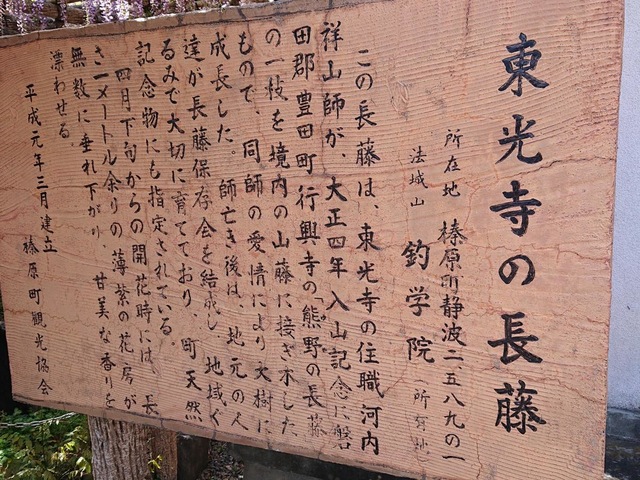 東光寺の長藤
所在地 榛原町静波二、五八九の一
法城山 釣学院
この長藤は、東光寺の住職河内
祥山師が、大正四年入山記念に磐
田郡豊田町行興寺の「熊野の長藤
の一枝を境内の山藤に接ぎ木した
もので、同師の愛情により大樹に
成長した。師亡き後は、地元の人
達が長藤保存会を結成し、地域ぐ
るみで大切に育てており、町天然
記念物にも指定されている。
四月下旬からの開花時には、長
さ一メートル余りの薄紫の花房が
無数に垂れ下がり、甘美な香りを
漂わせる
平成元年三月建立 榛原町観光協会